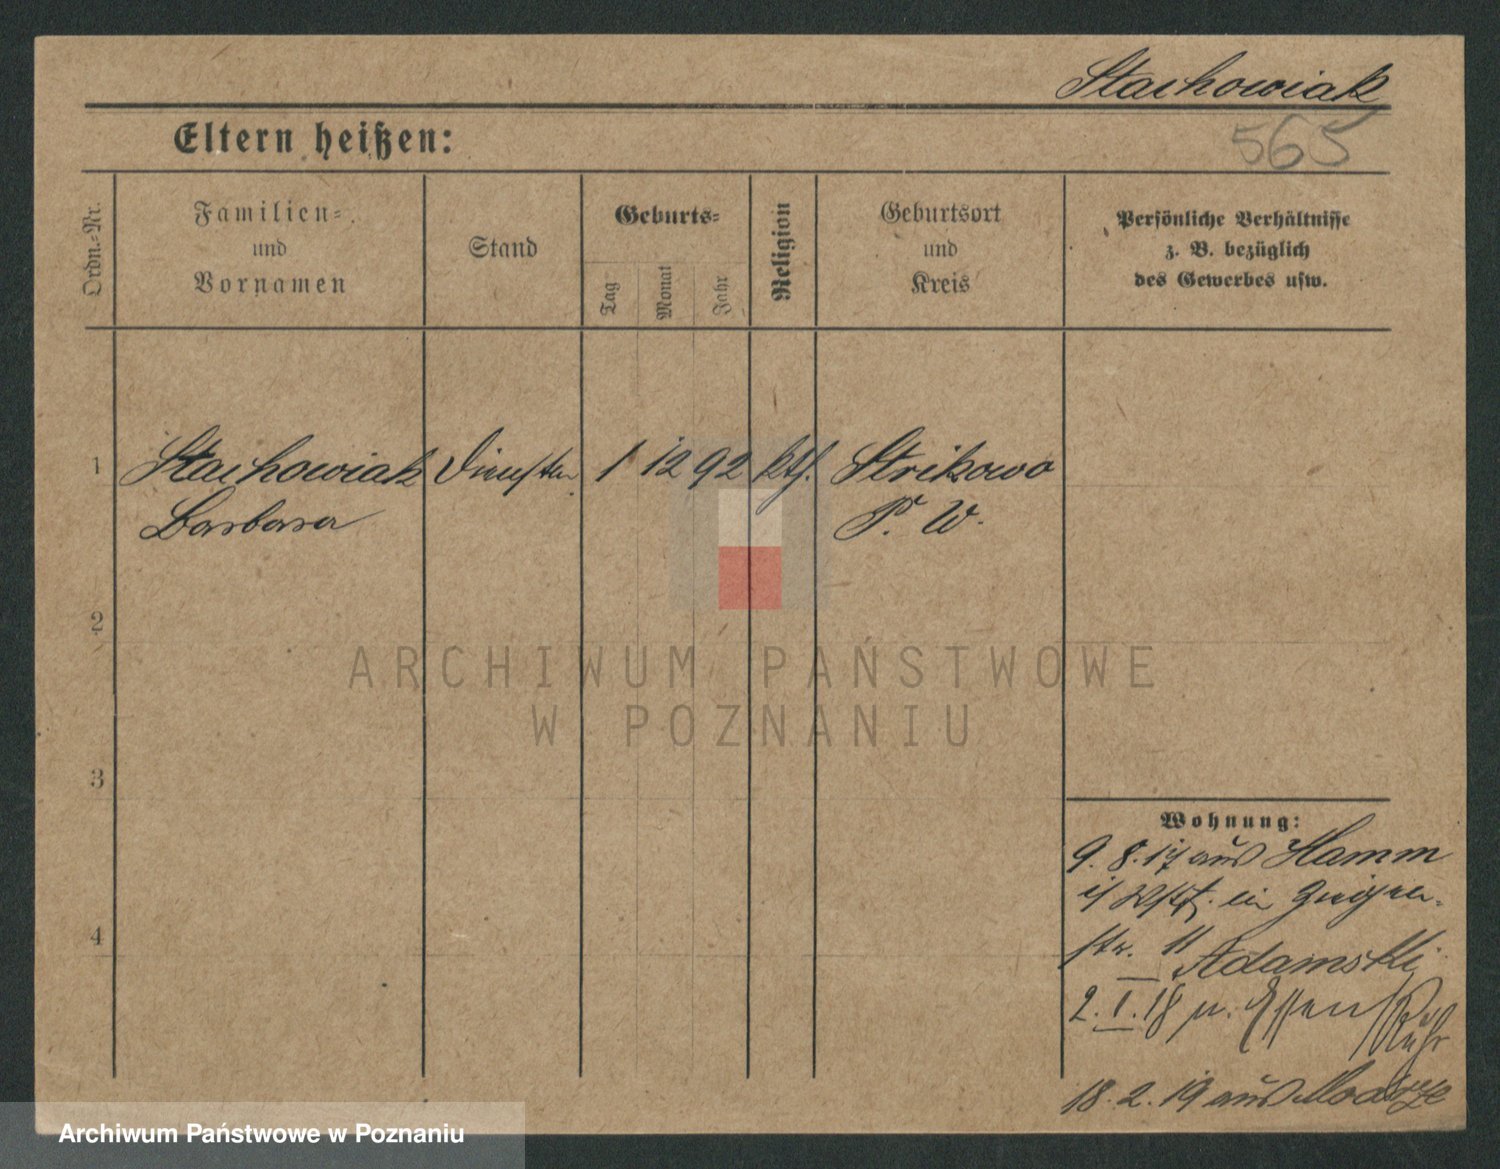 Stachowiak
565
Eltern heißen:
Ordn.=Nr.
Familien=
und
Vornamen
Stand
Geburts=
Tag
Monat
Jahr
Religion
Geburtsort
und
Kreis
Persönliche Verhältnisse
z. B. bezüglich
des Gewerbes usw.
1 Stachowiak 1 12 92 kth. Strikowo
Barbara P. W.
2
3
4
Wohnung:
9. 8. 17 aus Hamm
in
str. 11 Adamski
2. I. 18 n. Essen
Ruhr
18. 2. 19 aus
ARCHIWUM PAŃSTWOWE
W POZNANIU
Archiwum Państwowe w Poznaniu